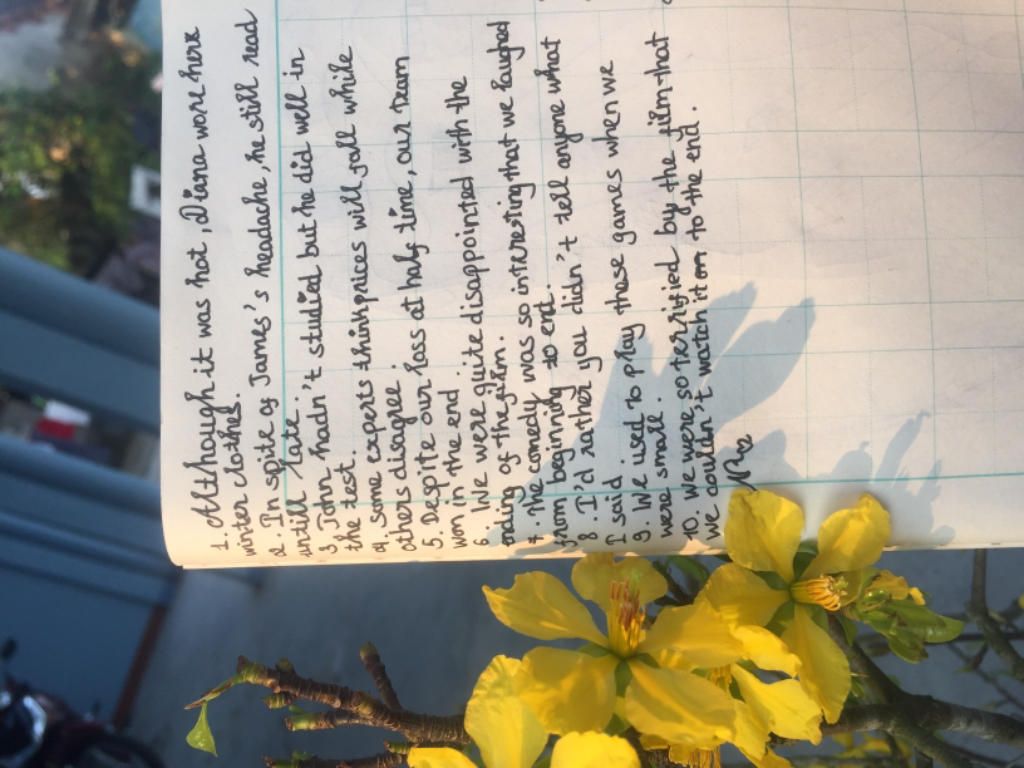 1. Although it was hot, Diana wore here
winter clothes.
2. In spite of James's headache, he still read
untill late.
3 John hadn't studied but he did well in
the test.
4. some experts think prices will fall while
others disagree.
5. Despite our loss at half time, our team
won in the end.
6. We were quite disappointed with the
ending of the film.
7. The comedy was so interesting that we laughed
from beginning to end.
8. I'd rather you didn't tell anyone what
I said.
9. We used to play these games when we
were small.
10. we were so terrified by the film that
we couldn't watch it on to the end.